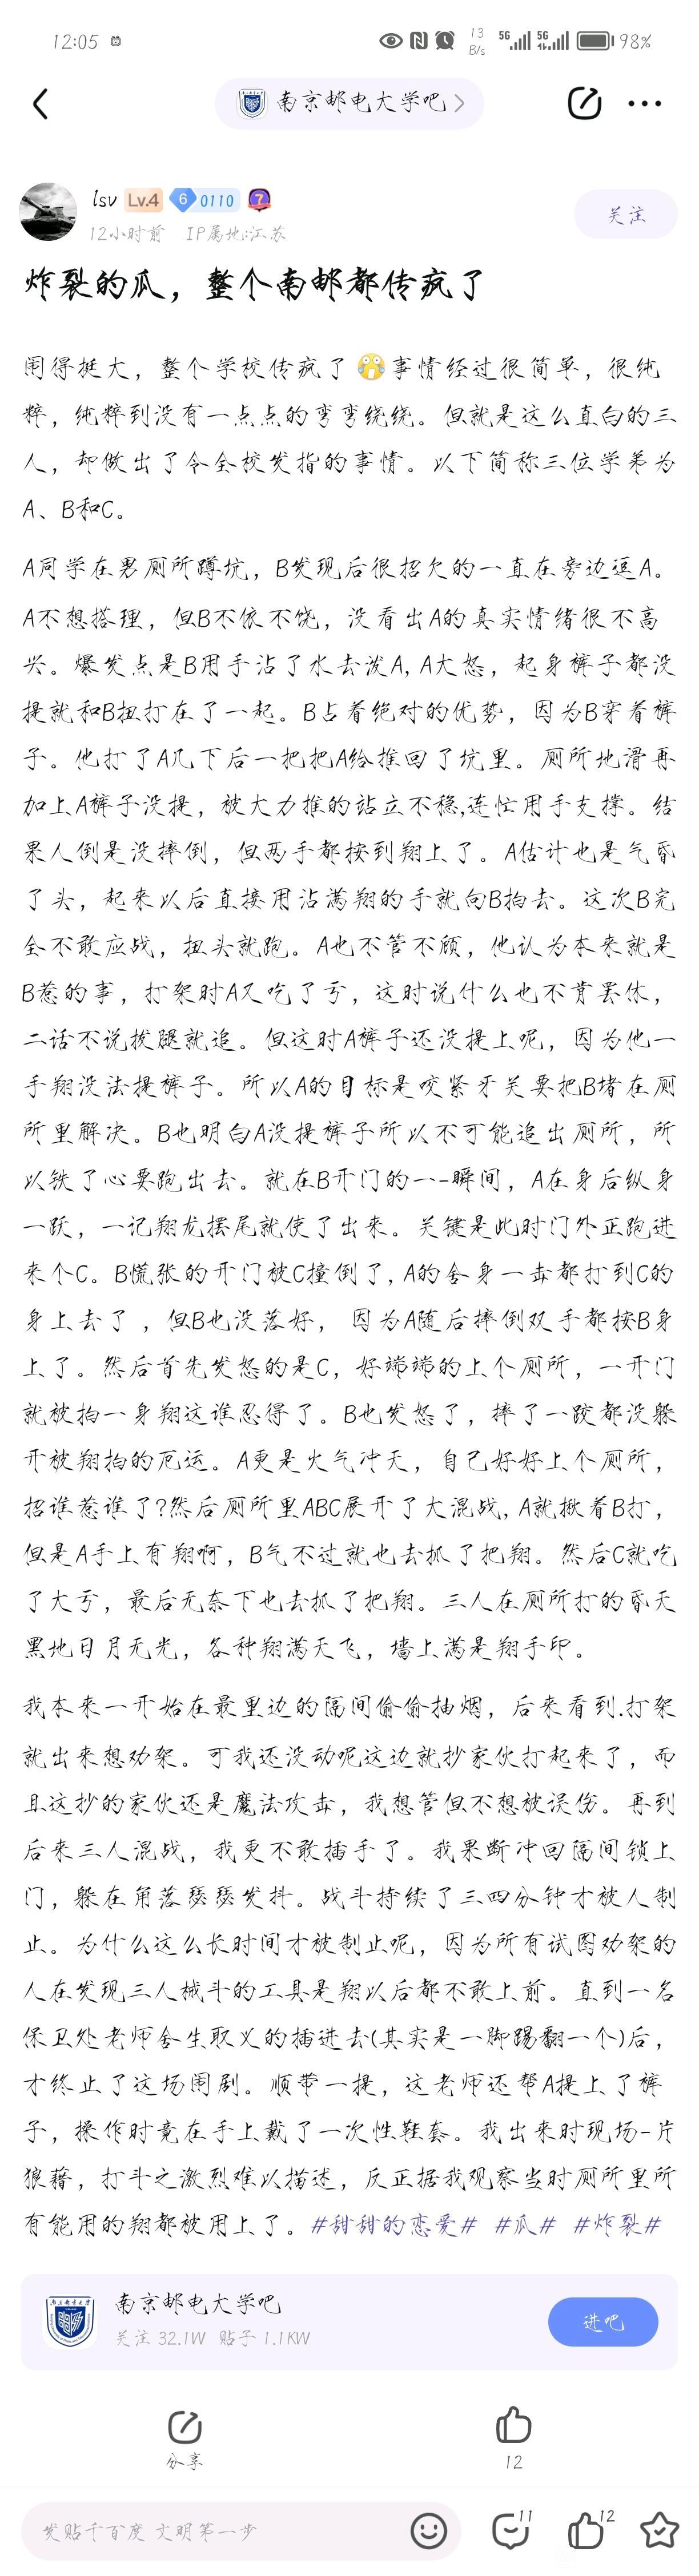 12:05
13 B/s 5G 5G 98%
南京邮电大学吧
lsv Lv.4 6 0110 7
12小时前 IP属地:江苏
关注
炸裂的瓜，整个南邮都传疯了
闹得挺大，整个学校传疯了😭事情经过很简单，很纯
粹，纯粹到没有一点点的弯弯绕绕。但就是这么直白的三
人，却做出了令全校发指的事情。以下简称三位学弟为
A、B和C。
A同学在男厕所蹲坑，B发现后很招欠的一直在旁边逗A。
A不想搭理，但B不依不饶，没看出A的真实情绪很不高
兴。爆发点是B用手沾了水去泼A, A大怒，起身裤子都没
提就和B扭打在了一起。B占着绝对的优势，因为B穿着裤
子。他打了A几下后一把把A给推回了坑里。厕所地滑再
加上A裤子没提，被大力推的站立不稳,连忙用手支撑。结
果人倒是没摔倒，但两手都按到翔上了。A估计也是气昏
了头，起来以后直接用沾满翔的手就向B拍去。这次B完
全不敢应战，扭头就跑。A也不管不顾，他认为本来就是
B惹的事，打架时A又吃了亏，这时说什么也不肯罢休，
二话不说拔腿就追。但这时A裤子还没提上呢，因为他一
手翔没法提裤子。所以A的目标是咬紧牙关要把B堵在厕
所里解决。B也明白A没提裤子所以不可能追出厕所，所
以铁了心要跑出去。就在B开门的一-瞬间，A在身后纵身
一跃，一记翔龙摆尾就使了出来。关键是此时门外正跑进
来个C。B慌张的开门被C撞倒了, A的舍身一击都打到C的
身上去了，但B也没落好， 因为A随后摔倒双手都按B身
上了。然后首先发怒的是C，好端端的上个厕所，一开门
就被拍一身翔这谁忍得了。B也发怒了，摔了一跤都没躲
开被翔拍的厄运。A更是火气冲天，自己好好上个厕所，
招谁惹谁了?然后厕所里ABC展开了大混战, A就揪着B打，
但是A手上有翔啊，B气不过就也去抓了把翔。然后C就吃
了大亏，最后无奈下也去抓了把翔。三人在厕所打的昏天
黑地日月无光，各种翔满天飞，墙上满是翔手印。
我本来一开始在最里边的隔间偷偷抽烟，后来看到.打架
就出来想劝架。可我还没动呢这边就抄家伙打起来了，而
且这抄的家伙还是魔法攻击，我想管但不想被误伤。再到
后来三人混战，我更不敢插手了。我果断冲回隔间锁上
门，躲在角落瑟瑟发抖。战斗持续了三四分钟才被人制
止。为什么这么长时间才被制止呢，因为所有试图劝架的
人在发现三人械斗的工具是翔以后都不敢上前。直到一名
保卫处老师舍生取义的插进去(其实是一脚踢翻一个)后，
才终止了这场闹剧。顺带一提，这老师还帮A提上了裤
子，操作时竟在手上戴了一次性鞋套。我出来时现场-片
狼藉，打斗之激烈难以描述，反正据我观察当时厕所里所
有能用的翔都被用上了。#甜甜的恋爱# #瓜# #炸裂#
南京邮电大学吧
关注 32.1W 贴子 1.1KW
进吧
分享
12
发贴千百度 文明第一步
11
12